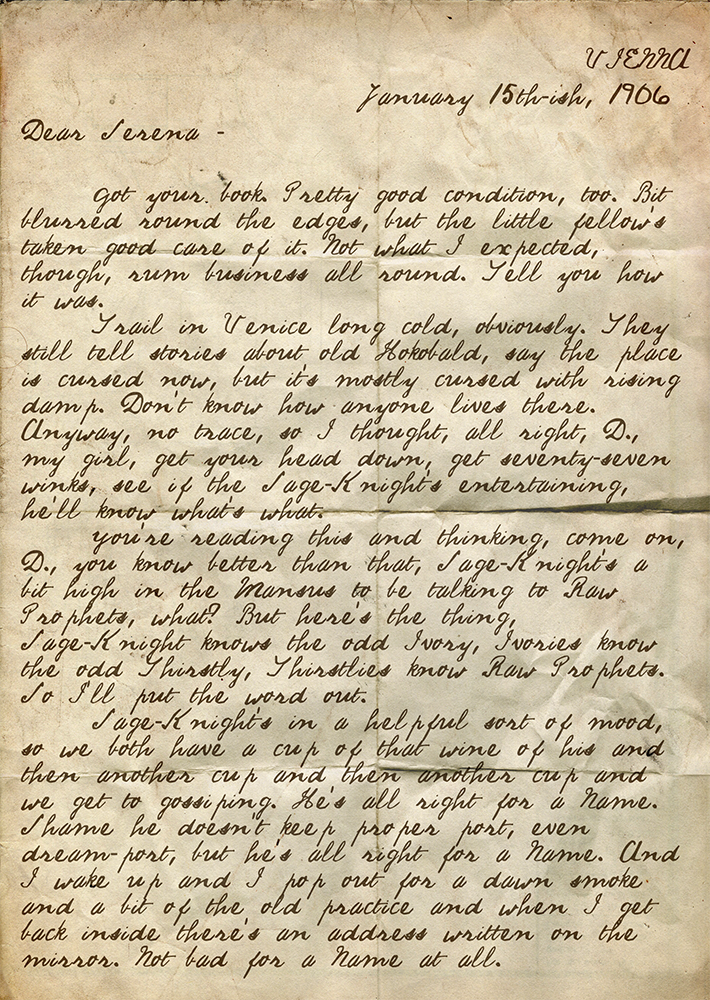 VIENNA
January 15th-ish, 1906
Dear Serena -
Got your book. Pretty good condition, too. Bit
blurred round the edges, but the little fellow's
taken good care of it. Not what I expected,
though, rum business all round. Tell you how
it was.
Trail in Venice long cold, obviously. They
still tell stories about old Hokobald, say the place
is cursed now, but it's mostly cursed with rising
damp. Don't know how anyone lives there.
Anyway, no trace, so I thought, all right, D.,
my girl, get your head down, get seventy-seven
winks, see if the Sage-Knight's entertaining,
he'll know what's what.
You're reading this and thinking, come on,
D., you know better than that, Sage-Knight's a
bit high in the Mansus to be talking to Raw
Prophets, what? But here's the thing,
Sage-Knight knows the odd Ivory, Ivories know
the odd Thirstly, Thirstlies know Raw Prophets.
So I'll put the word out.
Sage-Knight's in a helpful sort of mood,
so we both have a cup of that wine of his and
then another cup and then another cup and
we get to gossiping. He's all right for a Name.
Shame he doesn't keep proper port, even
dream-port, but he's all right for a Name. And
I wake up and I pop out for a dawn smoke
and a bit of the old practice and when I get
back inside there's an address written on the
mirror. Not bad for a Name at all.